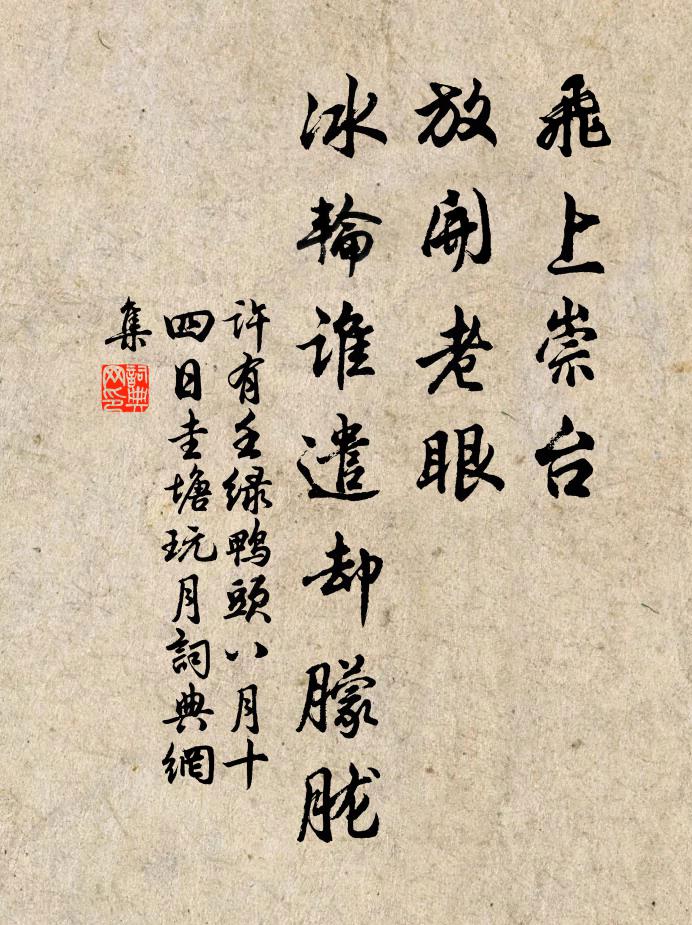 飛上崇台
放開老眼
冰輪誰遣却朦胧
許有壬緑鴨頭八月十
四日圭塘玩月詞典網
集
詞典
网印